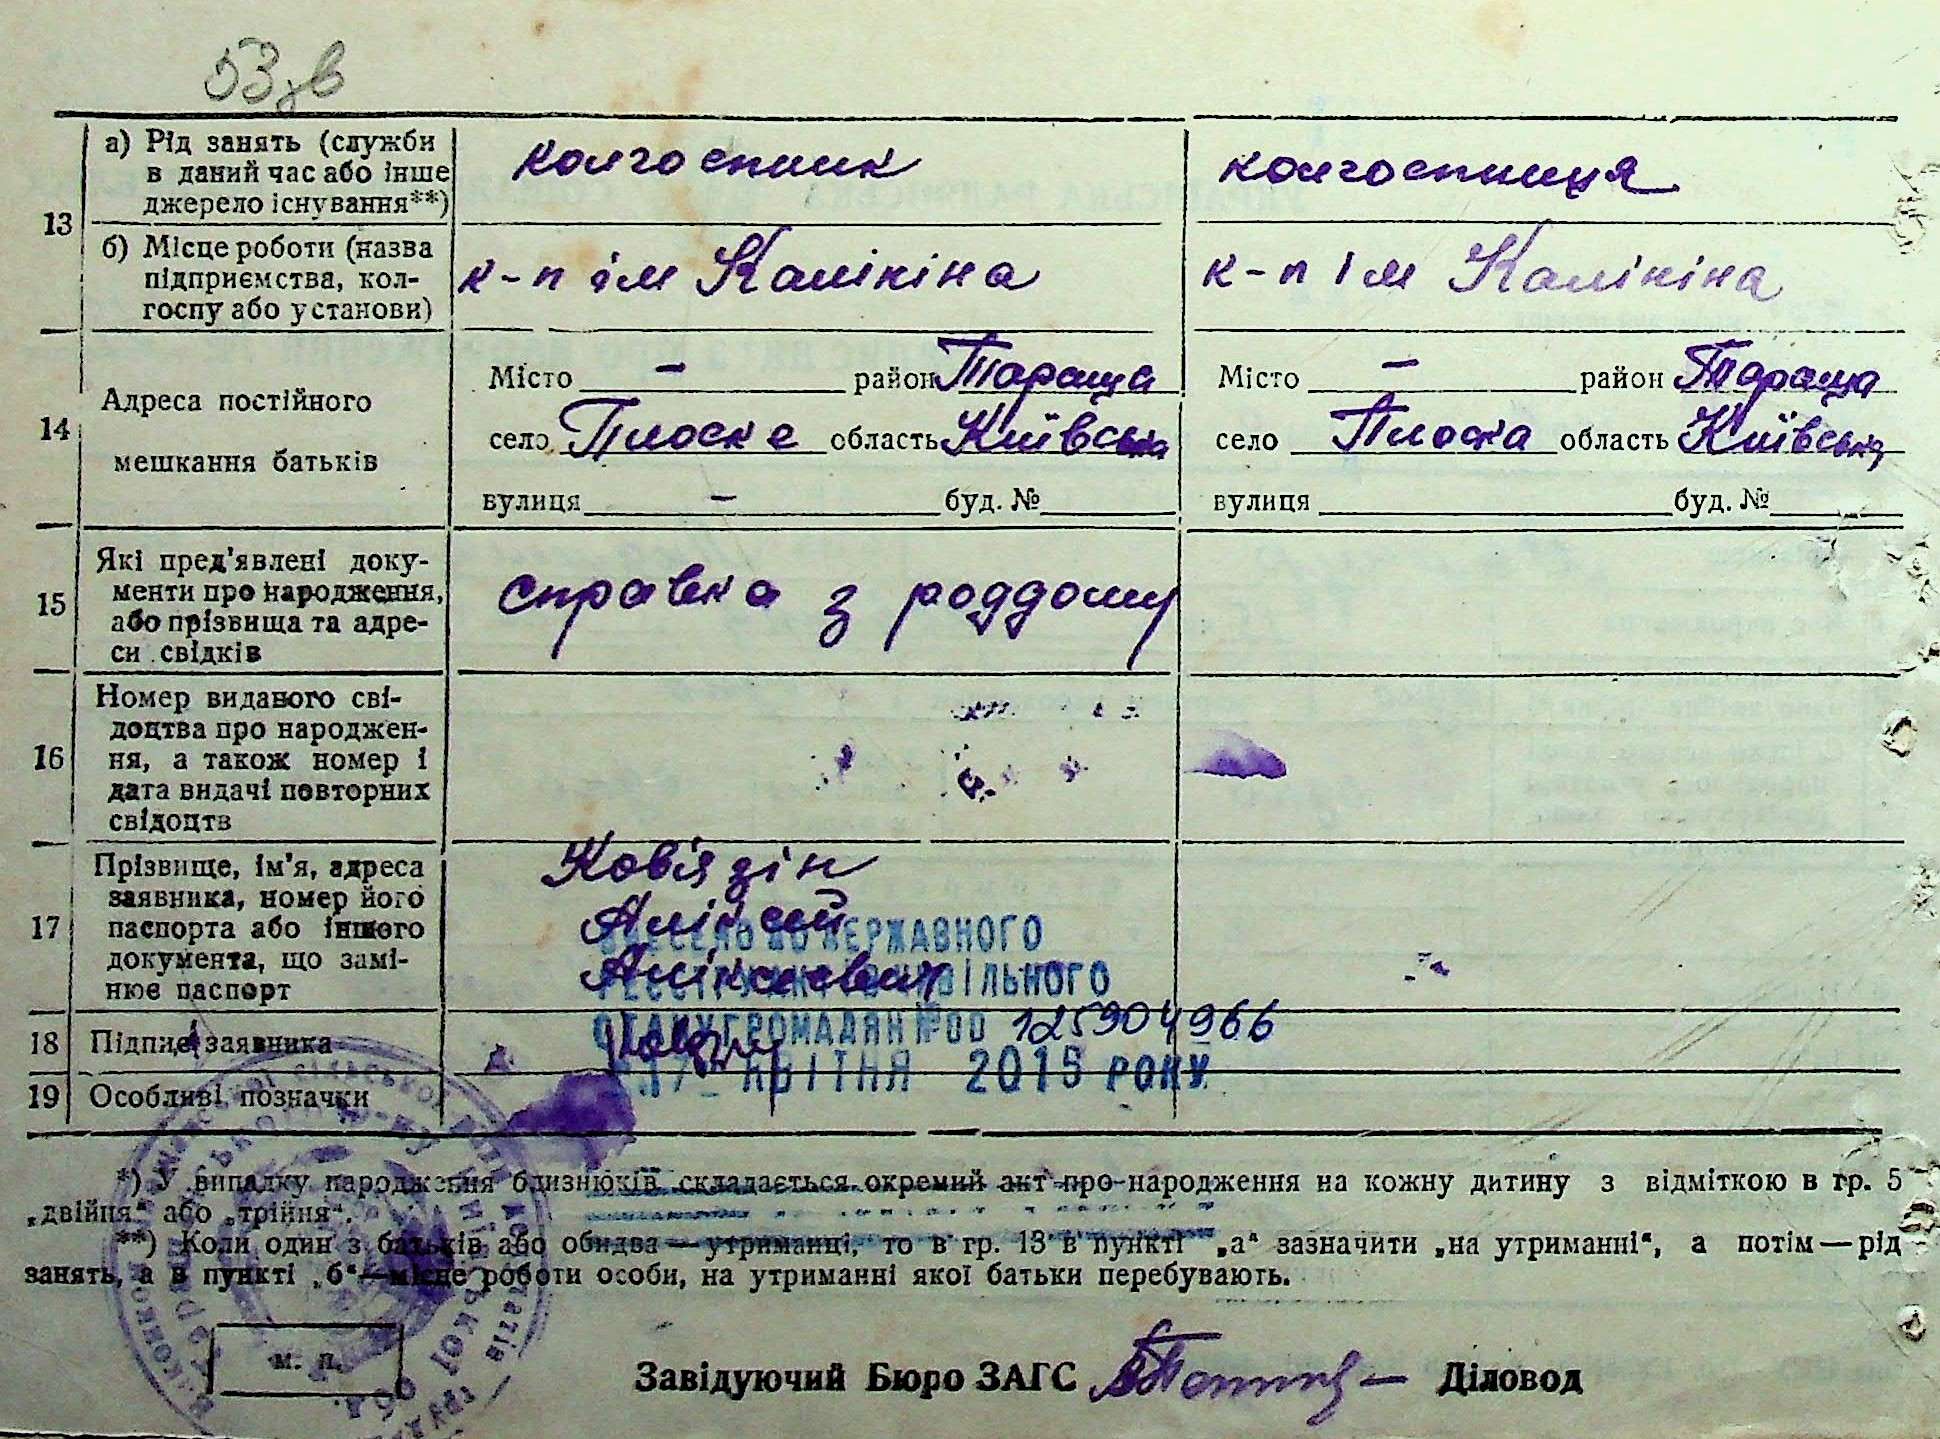 53 зв
13 а) Рід занять (служби в даний час або інше джерело існування**)
колгоспник
колгоспниця
б) Місце роботи (назва підприємства, колгоспу або установи)
к-п ім Калініна
к-п ім Калініна
14 Адреса постійного мешкання батьків
Місто – район Тараща
село Плоске область Київська
вулиця – буд. №
Місто – район Тараща
село Плоска область Київська
вулиця буд. №
15 Які пред'явлені документи про народження, або прізвища та адреси свідків
справка з роддому
16 Номер виданого свідоцтва про народження, а також номер і дата видачі повторних свідоцтв
17 Прізвище, ім'я, адреса заявника, номер його паспорта або іншого документа, що замінює паспорт
Ков'язін
Аліксей
Аліксеевич
ВНЕСЕНО ДО ДЕРЖАВНОГО
РЕЄСТРУ АКТІВ ЦИВІЛЬНОГО
СТАНУ ГРОМАДЯН №00 125904966
17 КВІТНЯ 2015 РОКУ
18 Підпис заявника
19 Особливі позначки
*) У випадку народження близнюків складається окремий акт про народження на кожну дитину з відміткою в гр. 5
„двійня“ або „трійня“.
**) Коли один з батьків або обидва—утриманці, то в гр. 13 в пункті „а“ зазначити „на утриманні“, а потім—рід
занять, а в пункті „б“—місце роботи особи, на утриманні якої батьки перебувають.
м. п.
Завідуючий Бюро ЗАГС Діловод